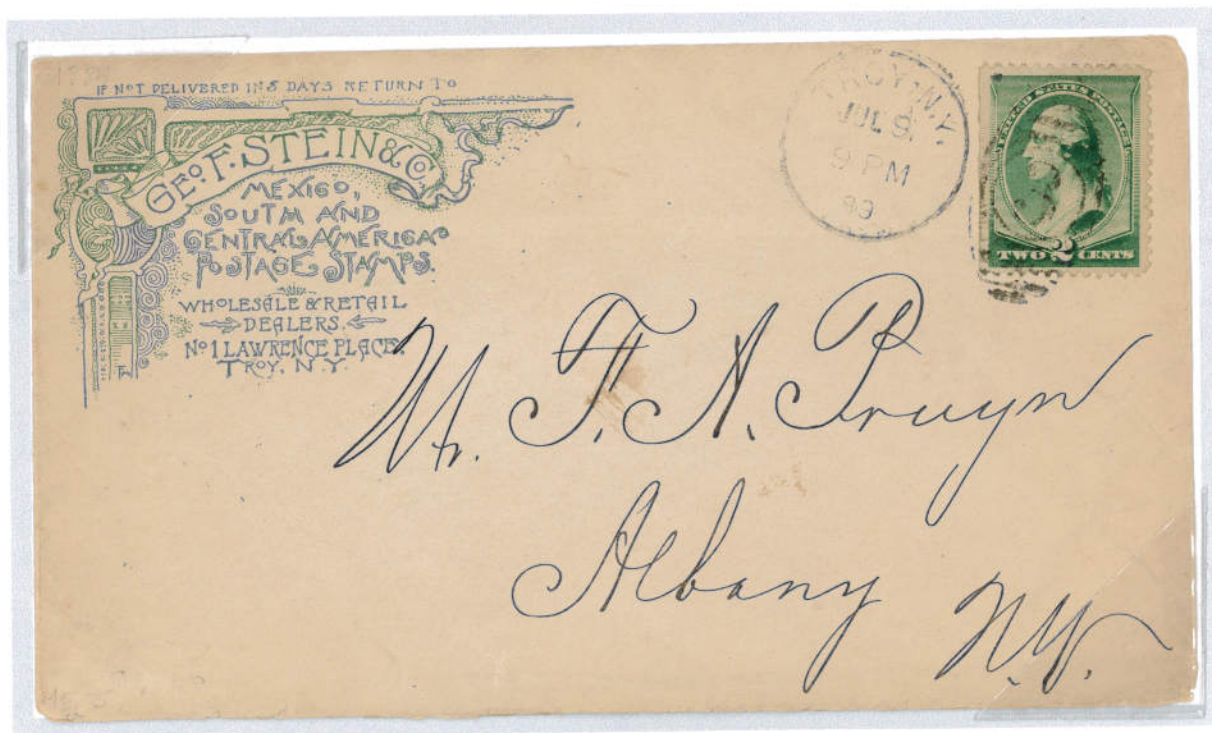 IF NOT DELIVERED IN 5 DAYS RETURN TO
GEO. F. STEIN & CO.
MEXICO,
SOUTH AND
CENTRAL AMERICA
POSTAGE STAMPS.
WHOLESALE & RETAIL
DEALERS.
No 1 LAWRENCE PLACE.
TROY, N.Y.
TROY, N.Y.
JUL 9.
9 PM
UNITED STATES POSTAGE
TWO 2 CENTS
Mr. F. A. Pruyn
Albany
N.Y.